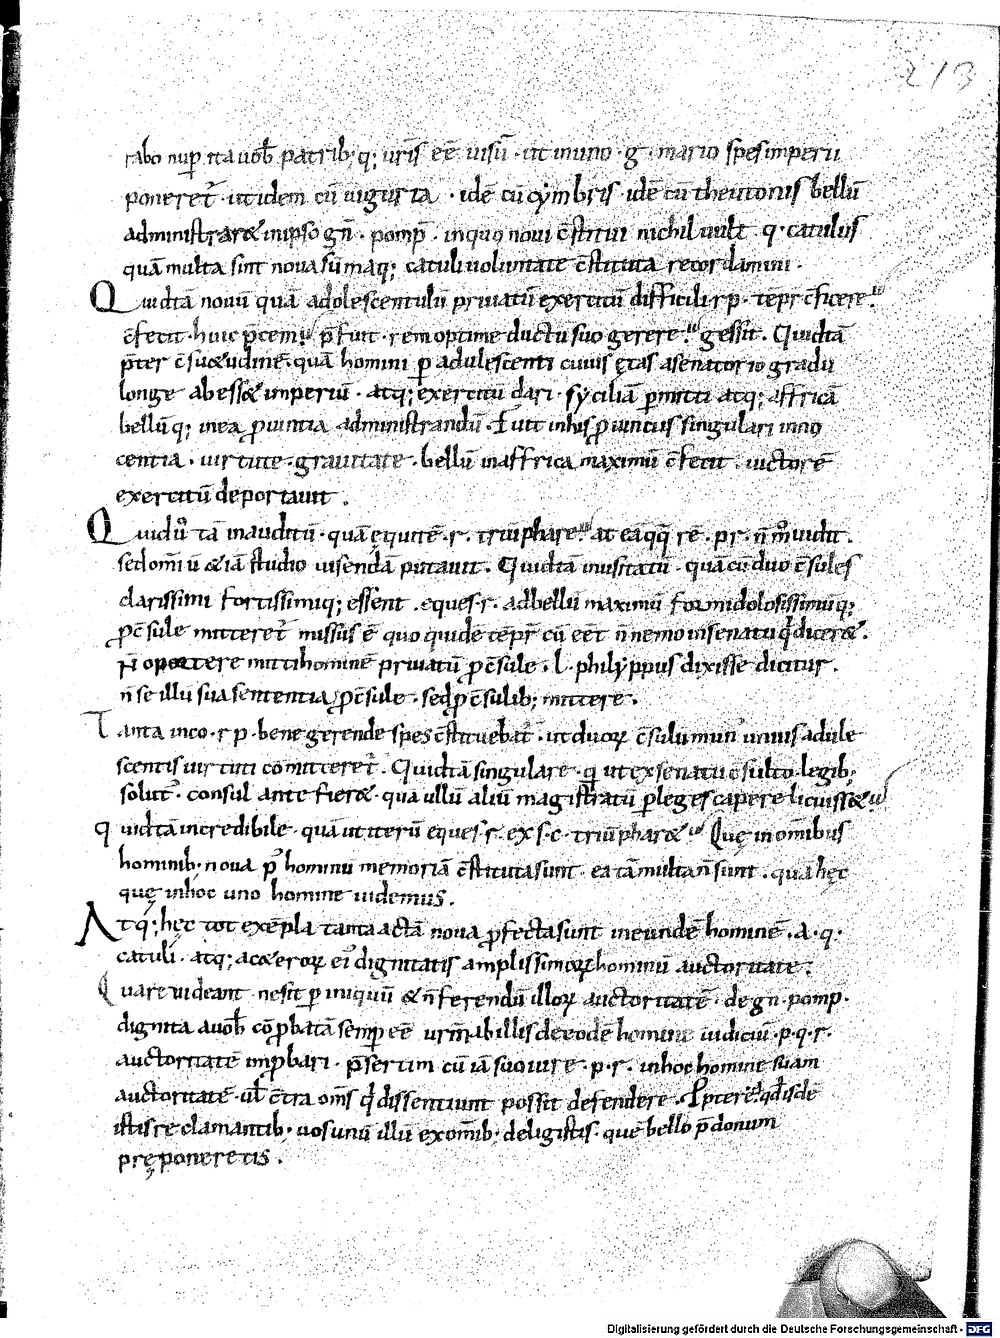 213
rabo nuꝑ ita uob̄ patrib; q; uris̄ eē uisū · ut inuno · g · mario spes imperii
poneret᷑ · ut idem cū iugurta · idē cū cymbris · idē cū theutonis bellū
administrar& inipso gn̄ · pomp̄ · inquo noui c̄stitui nichil uult · q · catulus
quā multa sint noua sūmaq; catuli uoluntate c̄stituta recordamini ·
Quidtā nouū quā adolescentulū priuatū exercitū difficili r p · tēpr c̄ficere ·
c̄fecit · huic p̄cem p̄fuit · rem optime ductu suo gerere · gessit . Quidtā
p̄ter c̄su&udinē · quā homini ꝑ adulescenti cuius ętas asenatorio gradu
longe abess& imperiū · atq; exercitū dari · syciliā ꝑmitti atq; affricā
bellūq; inea ꝓuintia administrandū · Fuit inhis ꝓuinciis singulari inno
centia · uirtute · grauitate · bellū inaffrica maximū c̄fecit · uictorē
exercitū deportauit .
Quid u̾ tā inauditū · quā ęquitē · r · triūphare · at eā qq̄ rē · p r · n̄ m̊ uidit .
sed om̄iū &iā studio uisendā putauit . Quidtā inusitatū · quā cū duo c̄sules
clarissimi fortissimiq; essent . eques · r · adbellū maximū formidolosissimūq;
ꝓc̄sule mitteret᷑ missus ē quo quidē tēpr̄ cū eēt n̄nemo insenatu q̄ dicer& .
n̄ oportere mitti hominē priuatū ꝓc̄sule · l · phylyppus dixisse dicitur .
n̄ se illū sua sententia ꝓc̄sule · sed ꝓc̄sulib; mittere .
Tanta inco · r p · bene gerende spes c̄stituebat᷑ · ut duoꝝ c̄sulū mun̾ unius adule
scentis uirtuti cōmitteret᷑ . Quidtā singulare · q̄ ut ex senatu c̄sulto legib;
solut᷒ · consul ante fier& · quā ullū aliū magistratū ꝑ leges capere licuiss&
quidtā incredibile · quā ut iterū eques · r · ex s · c · triūphar& Quę in omībus
hominib · noua p᷒ hominū memoriā c̄stituta sunt · ea tā multa n̄ sunt . quā hęc
quę inhoc uno homine uidemus .
Atq; hęc tot exēpla tanta ac tā noua ꝓfecta sunt ineundē hominē . a · q ·
catuli · atq; ac&eroꝝ ei᷒dē dignitatis amplissimoꝝ hominū auctoritate .
Quare uideant ne sit ꝑiniquū & n̄ ferendū illoꝝ auctoritatē · de gn̄ · pomp ·
dignita auob̄ cōprobatā semꝑ eē urm̄ abillis de eodē homine iudiciū · p · q · r ·
auctoritatē imꝓbari · p̄sertim cū iā suo iure · p · r · inhoc homine suam
auctoritatē · ul̄ c̄tra om̄s q̄ dissentiunt possit defendere . Ꝓpterea qd̄ isdē
istis reclamantib · uos unū illū ex omib · delegistis · quē bello p̄donum
pręponeretis .
Digitalisierung gefördert durch die Deutsche Forschungsgemeinschaft - DFG